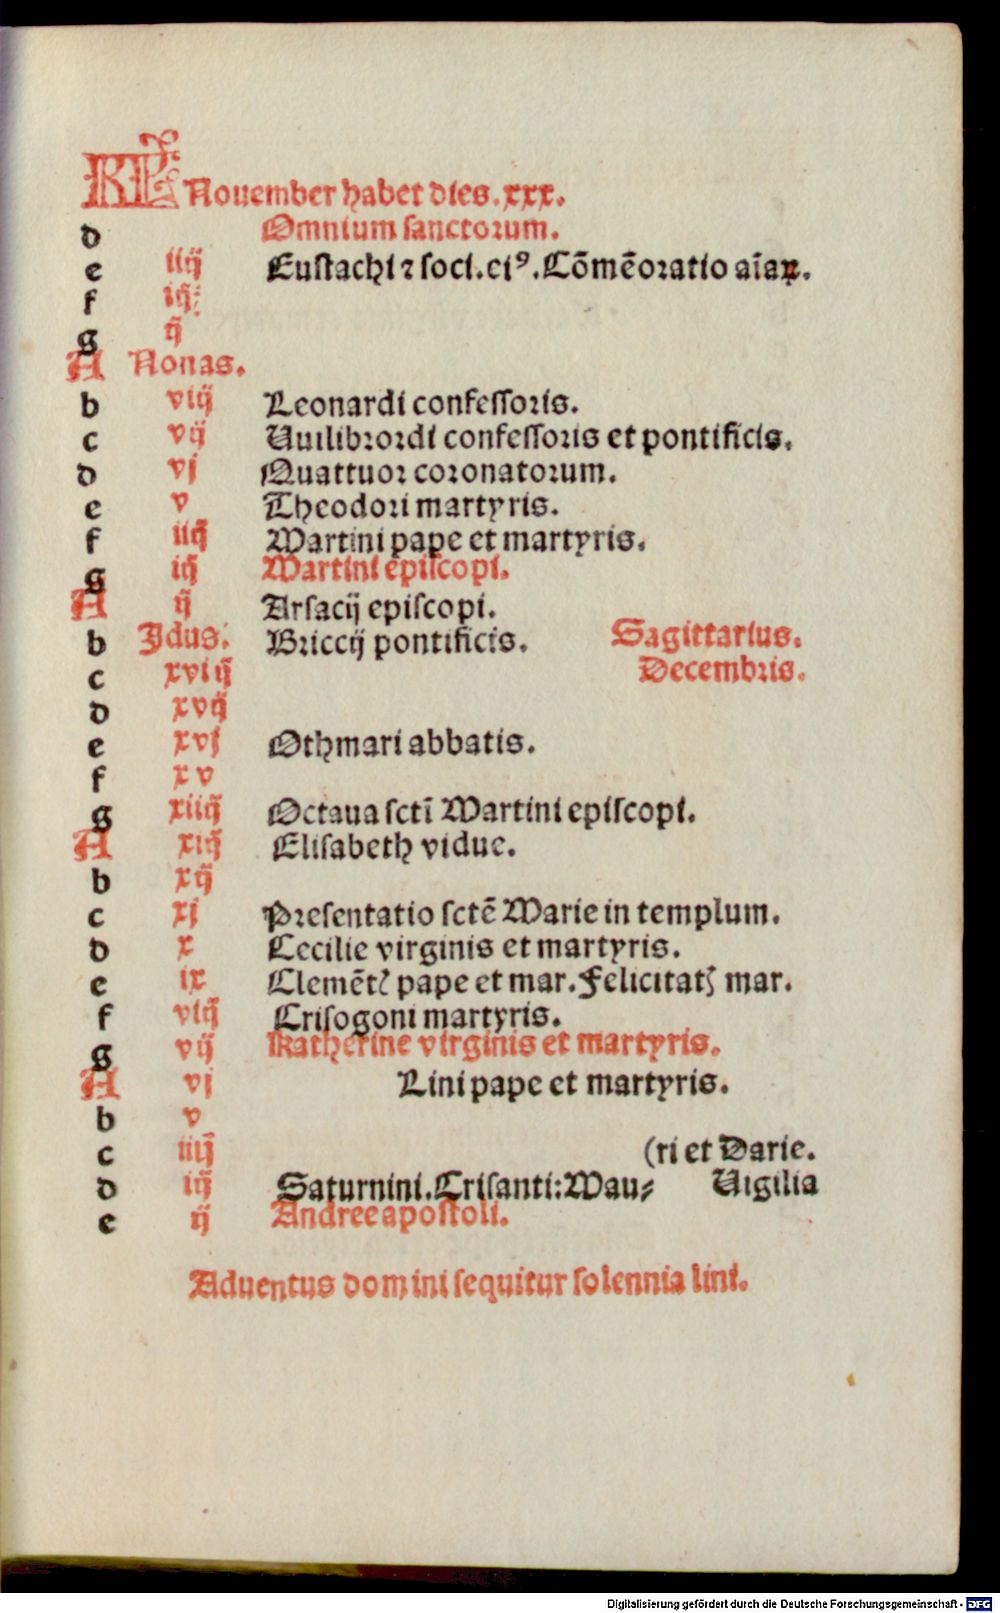 KL November habet dies.xxx.
d Omnium sanctorum.
e iiij Eustachi ⁊ soci.eiꝰ.Cōmēoratio aīaꝝ.
f iij
g ij
A Nonas.
b viij Leonardi confessoris.
c vij Uuilibrordi confessoris et pontificis.
d vj Quattuor coronatorum.
e v Theodori martyris.
f iiij Martini pape et martyris.
g iij Martini episcopi.
A ij Arsacij episcopi.
b Jdus. Briccij pontificis. Sagittarius.
c xviij Decembris.
d xvij
e xvj Othmari abbatis.
f xv
g xiiij Octaua sctī Martini episcopi.
A xiij Elisabeth vidue.
b xij
c xj Presentatio sctē Marie in templum.
d x Cecilie virginis et martyris.
e ix Clemētꝭ pape et mar.Felicitatꝭ mar.
f viij Crisogoni martyris.
g vij Katherine virginis et martyris.
A vj Lini pape et martyris.
b v
c iiij (ri et Darie.
d iij Saturnini.Crisanti:Mau⸗ Uigilia
e ij Andree apostoli.
Aduentus domini sequitur solennia lini.
Digitalisierung gefördert durch die Deutsche Forschungsgemeinschaft - DFG